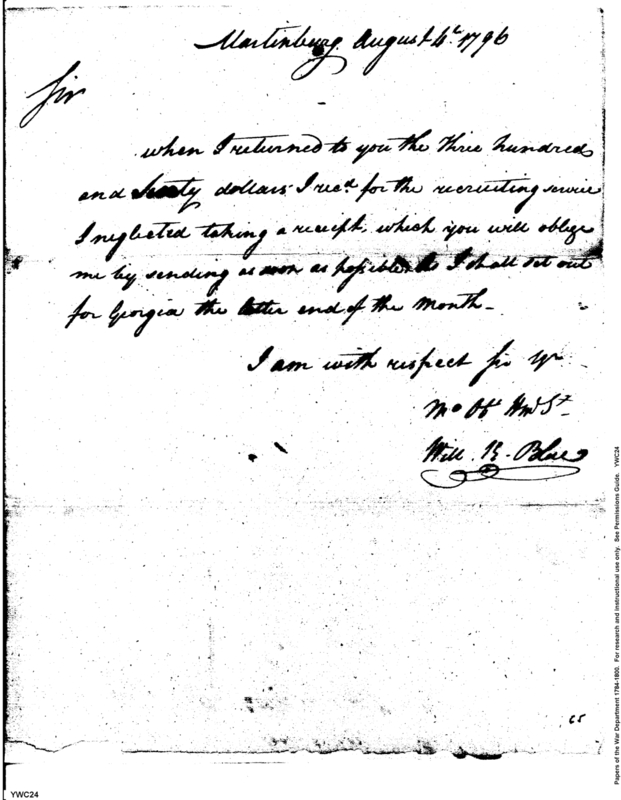 Martinburg August 4th 1796
Sir
when I returned to you the three hundred
and dollars I recd for the recruiting service
I neglected taking a receipt, which you will oblige
me by sending as soon as possible as I shall set out
for Georgia the latter end of the month—
I am with respect Sir yr
Mo Obt Hmb St
Will. K. Blue
65
YWC24
Papers of the War Department 1784-1800. For research and instructional use only. See Permissions Guide. YWC24